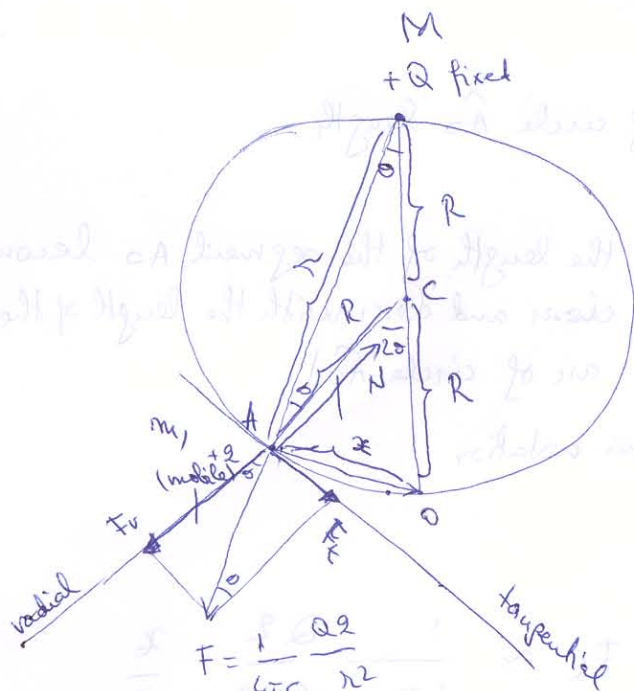 M
+Q fixed
θ
r
R
R
C
2θ
θ
N
R
A
x
m,
+q
(mobile)
O
Fr
Ft
θ
radial
tangential
F = 1/4πε Qq/r²